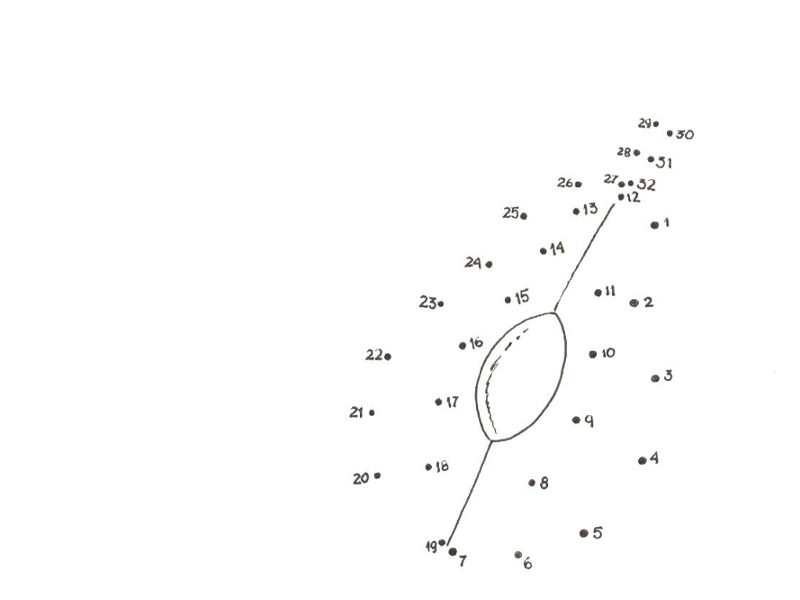 29
30
28
31
26
27
32
12
25
13
1
14
24
11
15
23
2
16
10
22
3
17
21
9
4
18
20
8
5
19
7
6